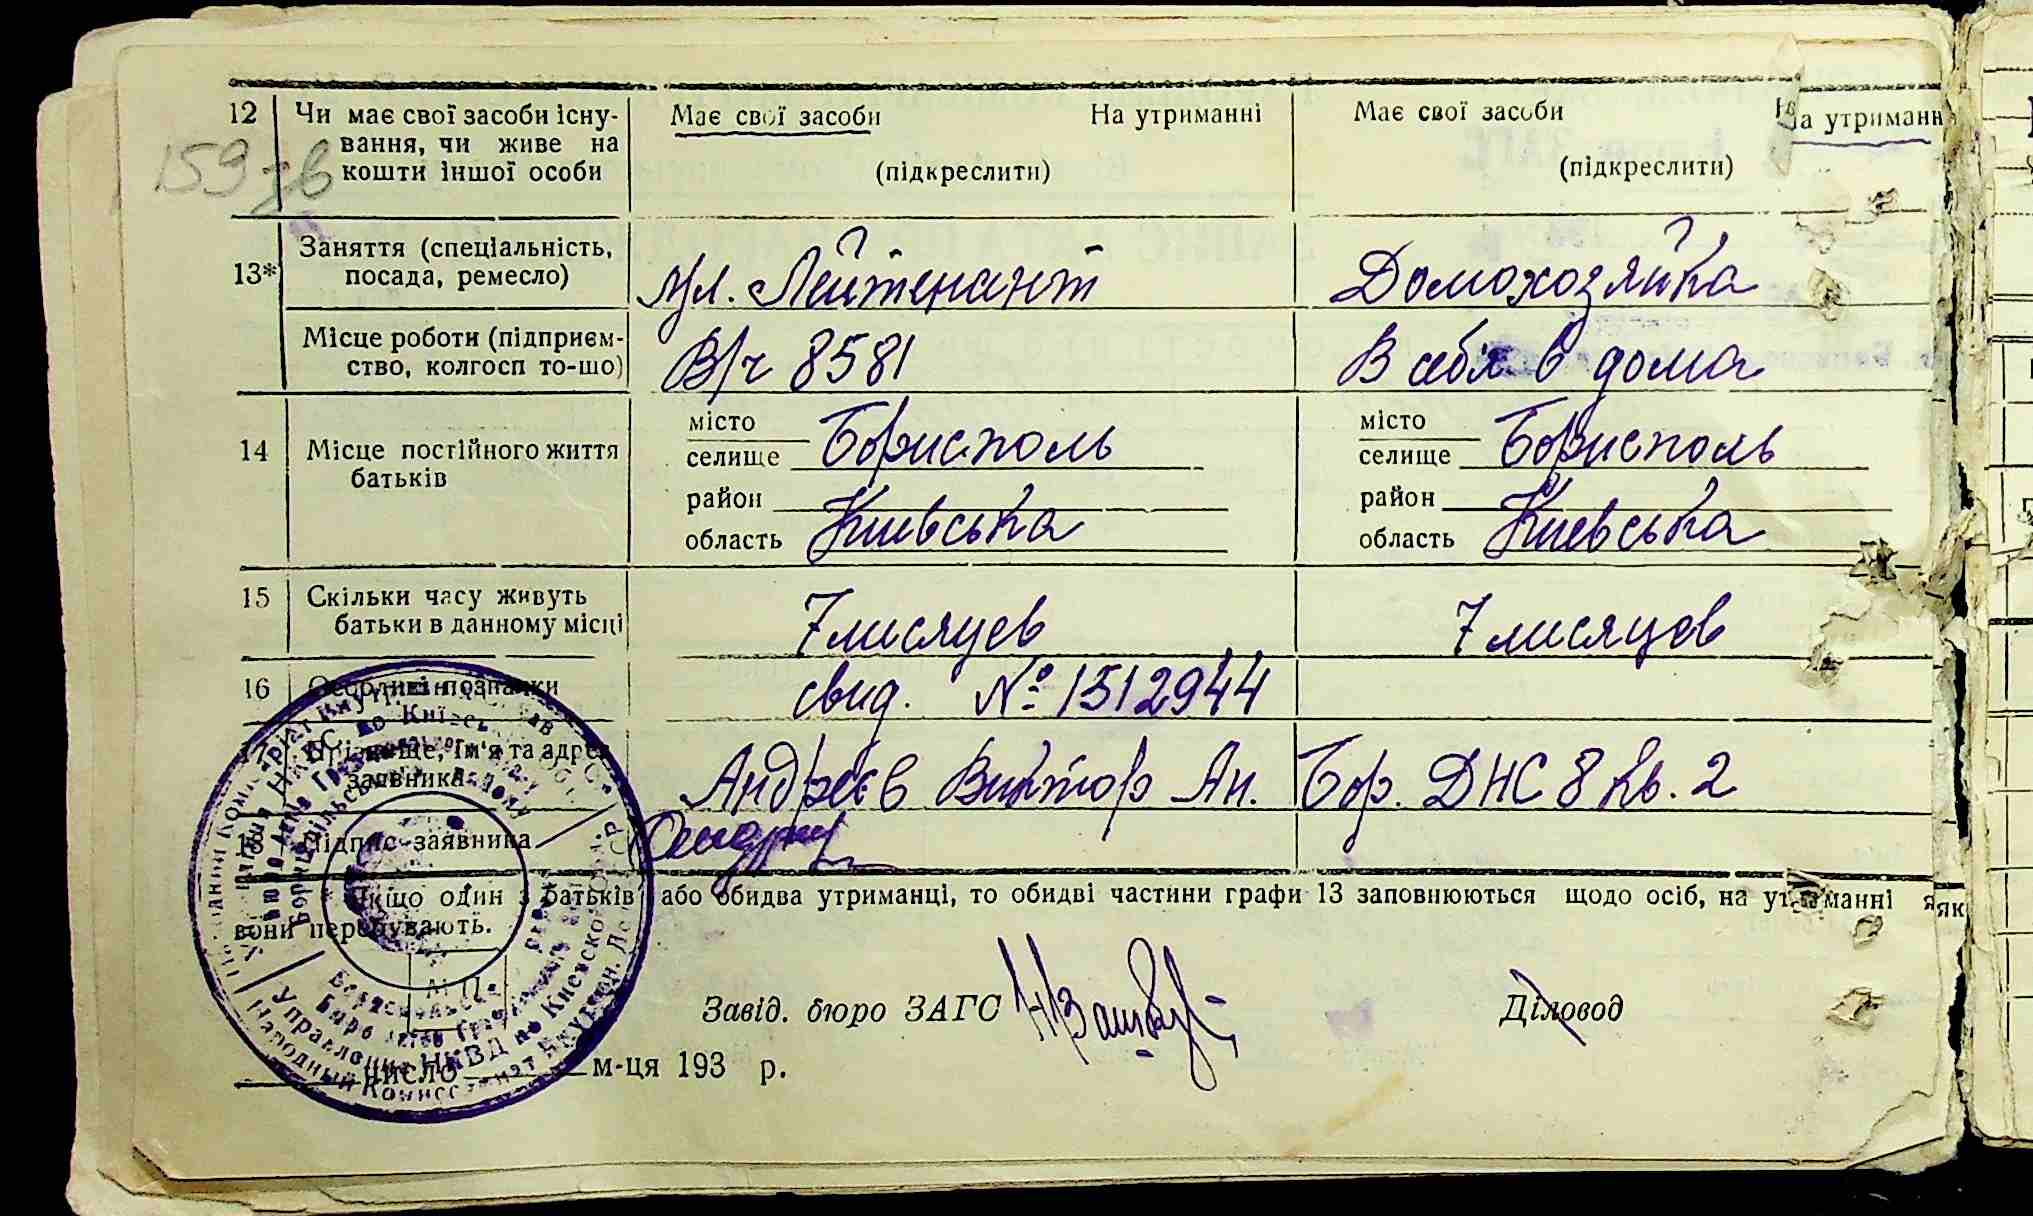 12 Чи має свої засоби існу- Має свої засоби На утриманні Має свої засоби На утриманн
вання, чи живе на
кошти іншої особи (підкреслити) (підкреслити)
159-зв
13* Заняття (спеціальність,
посада, ремесло) Мл. Лейтенант Домохозяйка
Місце роботи (підприєм-
ство, колгосп то-що) В/ч 8581 В себя в дома
14 Місце постійного життя
батьків
місто Борисполь місто Борисполь
селище селище
район район
область Киевська область Киевська
15 Скільки часу живуть
батьки в данному місці 7 мисяцев 7 мисяцев
16 Особливі познаки свид. № 1512944
17 Прізвище, ім'я та адрес
заявника Андреєв Виктор Ан. Бор. ДНС 8 кв. 2
18 Підпис заявника
Якщо один з батьків або обидва утриманці, то обидві частини графи 13 заповнюються щодо осіб, на утриманні як
вони перебувають.
М.П.
Завід. бюро ЗАГС Діловод
число м-ця 193 р.
Управление НКВД по Киевской
Народный Комиссариат Внутрен.